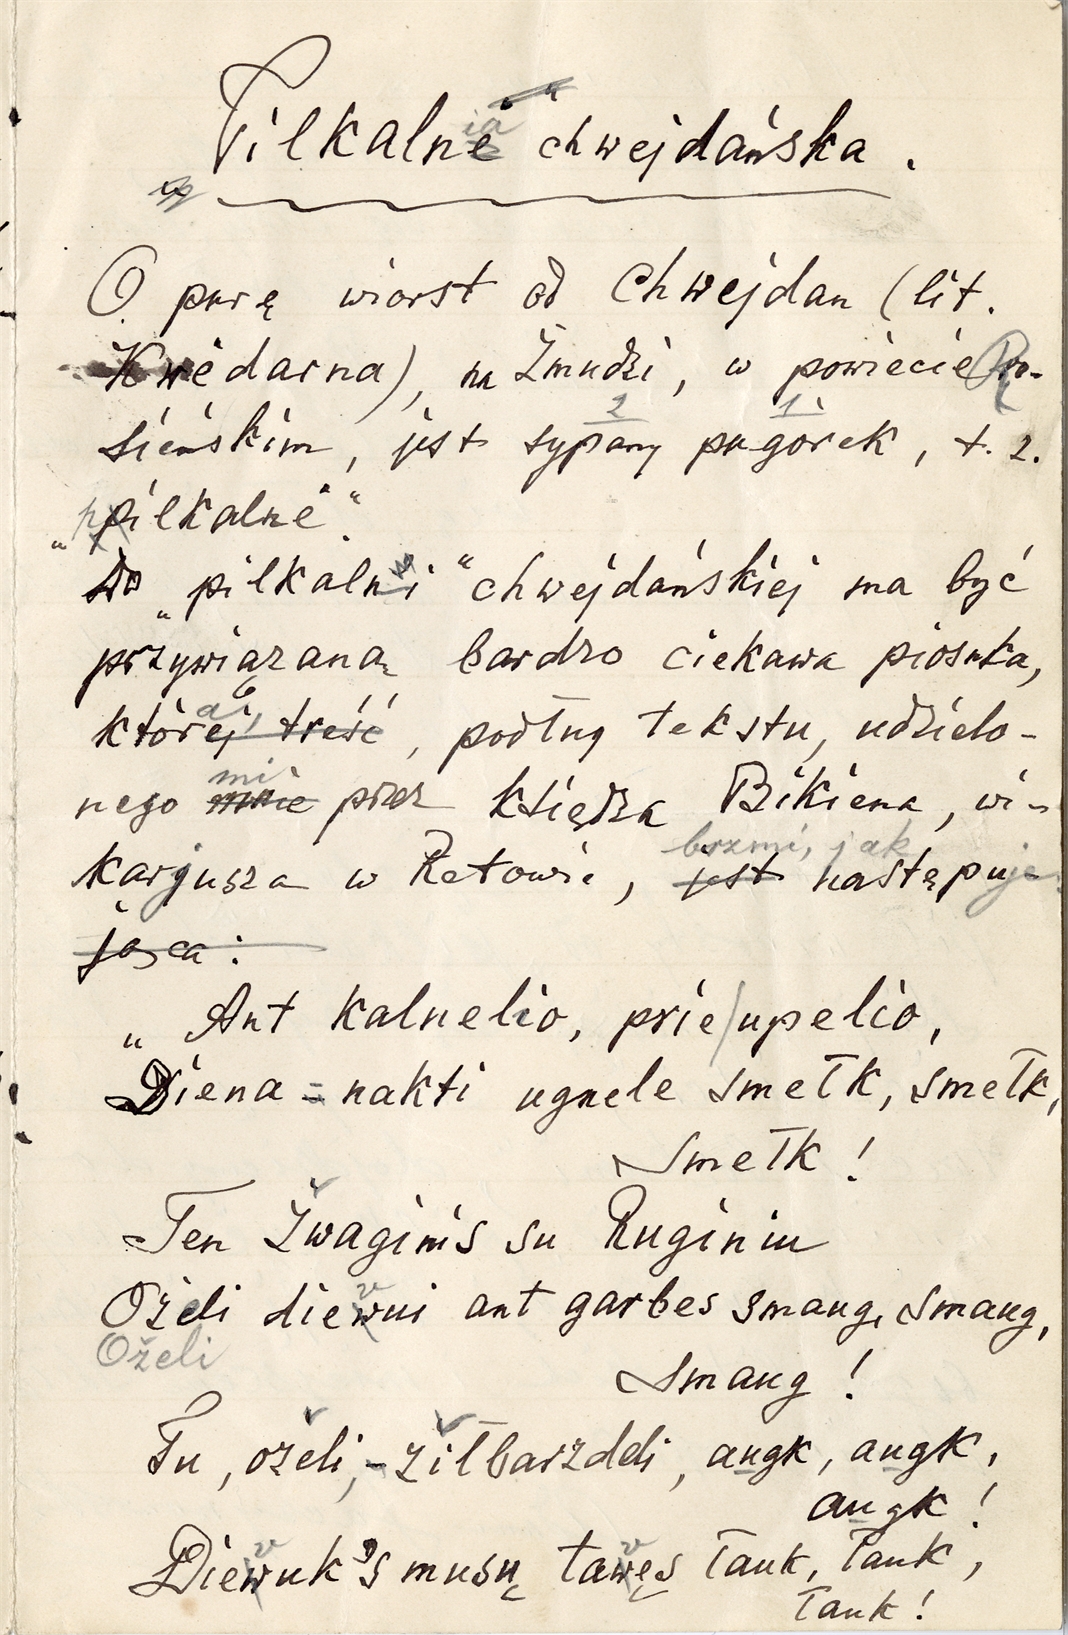 Pilkalnė chwejdańska.
O parę wiorst od Chwejdan (lit.
Kwėdarna), na Żmudzi, w powiecie Ro-
sieńskim, jest sypany pagórek, t. z.
„pilkalnė“.
Do „pilkalni“ chwejdańskiej ma być
przywiązaną bardzo ciekawa piosnka,
której treść, podług tekstu, udzielo-
nego mi przez księdza Bikiena, wi-
brzmi, jak
karjusza w Retowie, jest następuje
jąca:
„Ant kalnelio, prie upelio,
Diena = nakti ugnele smełk, smełk,
Smełk!
Ten Žwaginis su Ruginiu
Ożeli diewui ant garbes smaug, smaug,
Oželi
Smaug!
Tu, ożeli, - žiłbarzdeli, augk, augk,
augk!
Diewuk's musų tawęs łauk, łauk,
łauk!